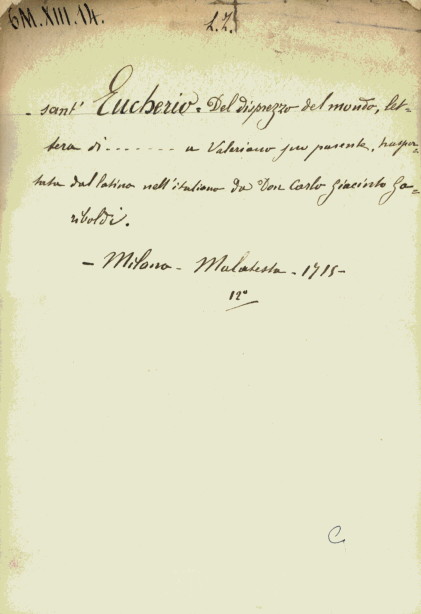 6M.XIII.14.
L.I.
- sant' Eucherio - Del disprezzo del mondo, let-
tera di ....... a Valeriano suo parente, traspor-
tata dal latino nell'italiano da Don Carlo Giacinto Ga-
riboldi.
- Milano - Malatesta - 1715 -
12°
C